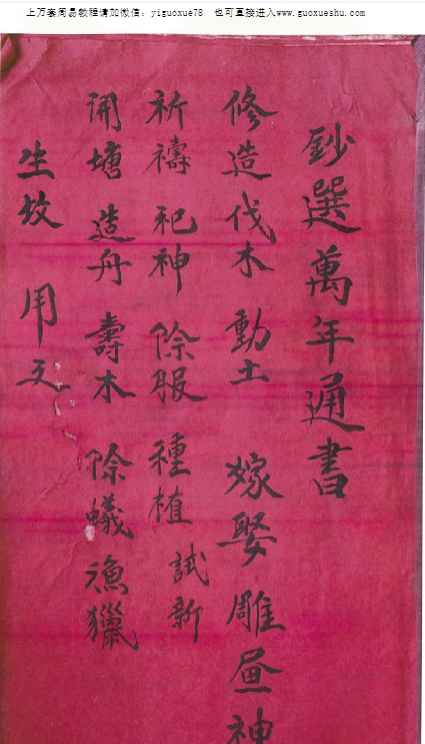 上万套周易教程请加微信：yiguoxue78 也可直接进入www.guoxueshu.com
鈔選萬年通書
修造 伐木 動土 嫁娶 雕 神
祈禱 祀神 除服 種植 試新
開塘 造舟 壽木 除蟻 漁獵
生坟 用